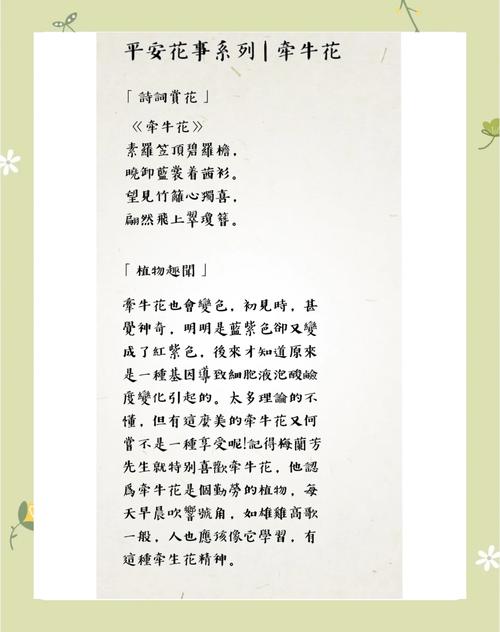 平安花事系列 | 牽牛花
「詩詞賞花」
《牽牛花》
素羅笠頂碧羅檐，
曉卸藍裳着茜衫。
望見竹籬心獨喜，
翩然飛上翠瓊簪。
「植物趣聞」
牽牛花也會變色，初見時，甚
覺神奇，明明是藍紫色卻又變
成了紅紫色，後來才知道原來
是一種基因導致細胞液泡酸鹼
度變化引起的。太多理論的不
懂，但有這麼美的牽牛花又何
嘗不是一種享受呢!記得梅蘭芳
先生就特别喜歡牽牛花，他認
爲牽牛花是個勤勞的植物，每
天早晨吹響號角，如雄雞高歌
一般，人也應該像它學習，有
這種牽生花精神。